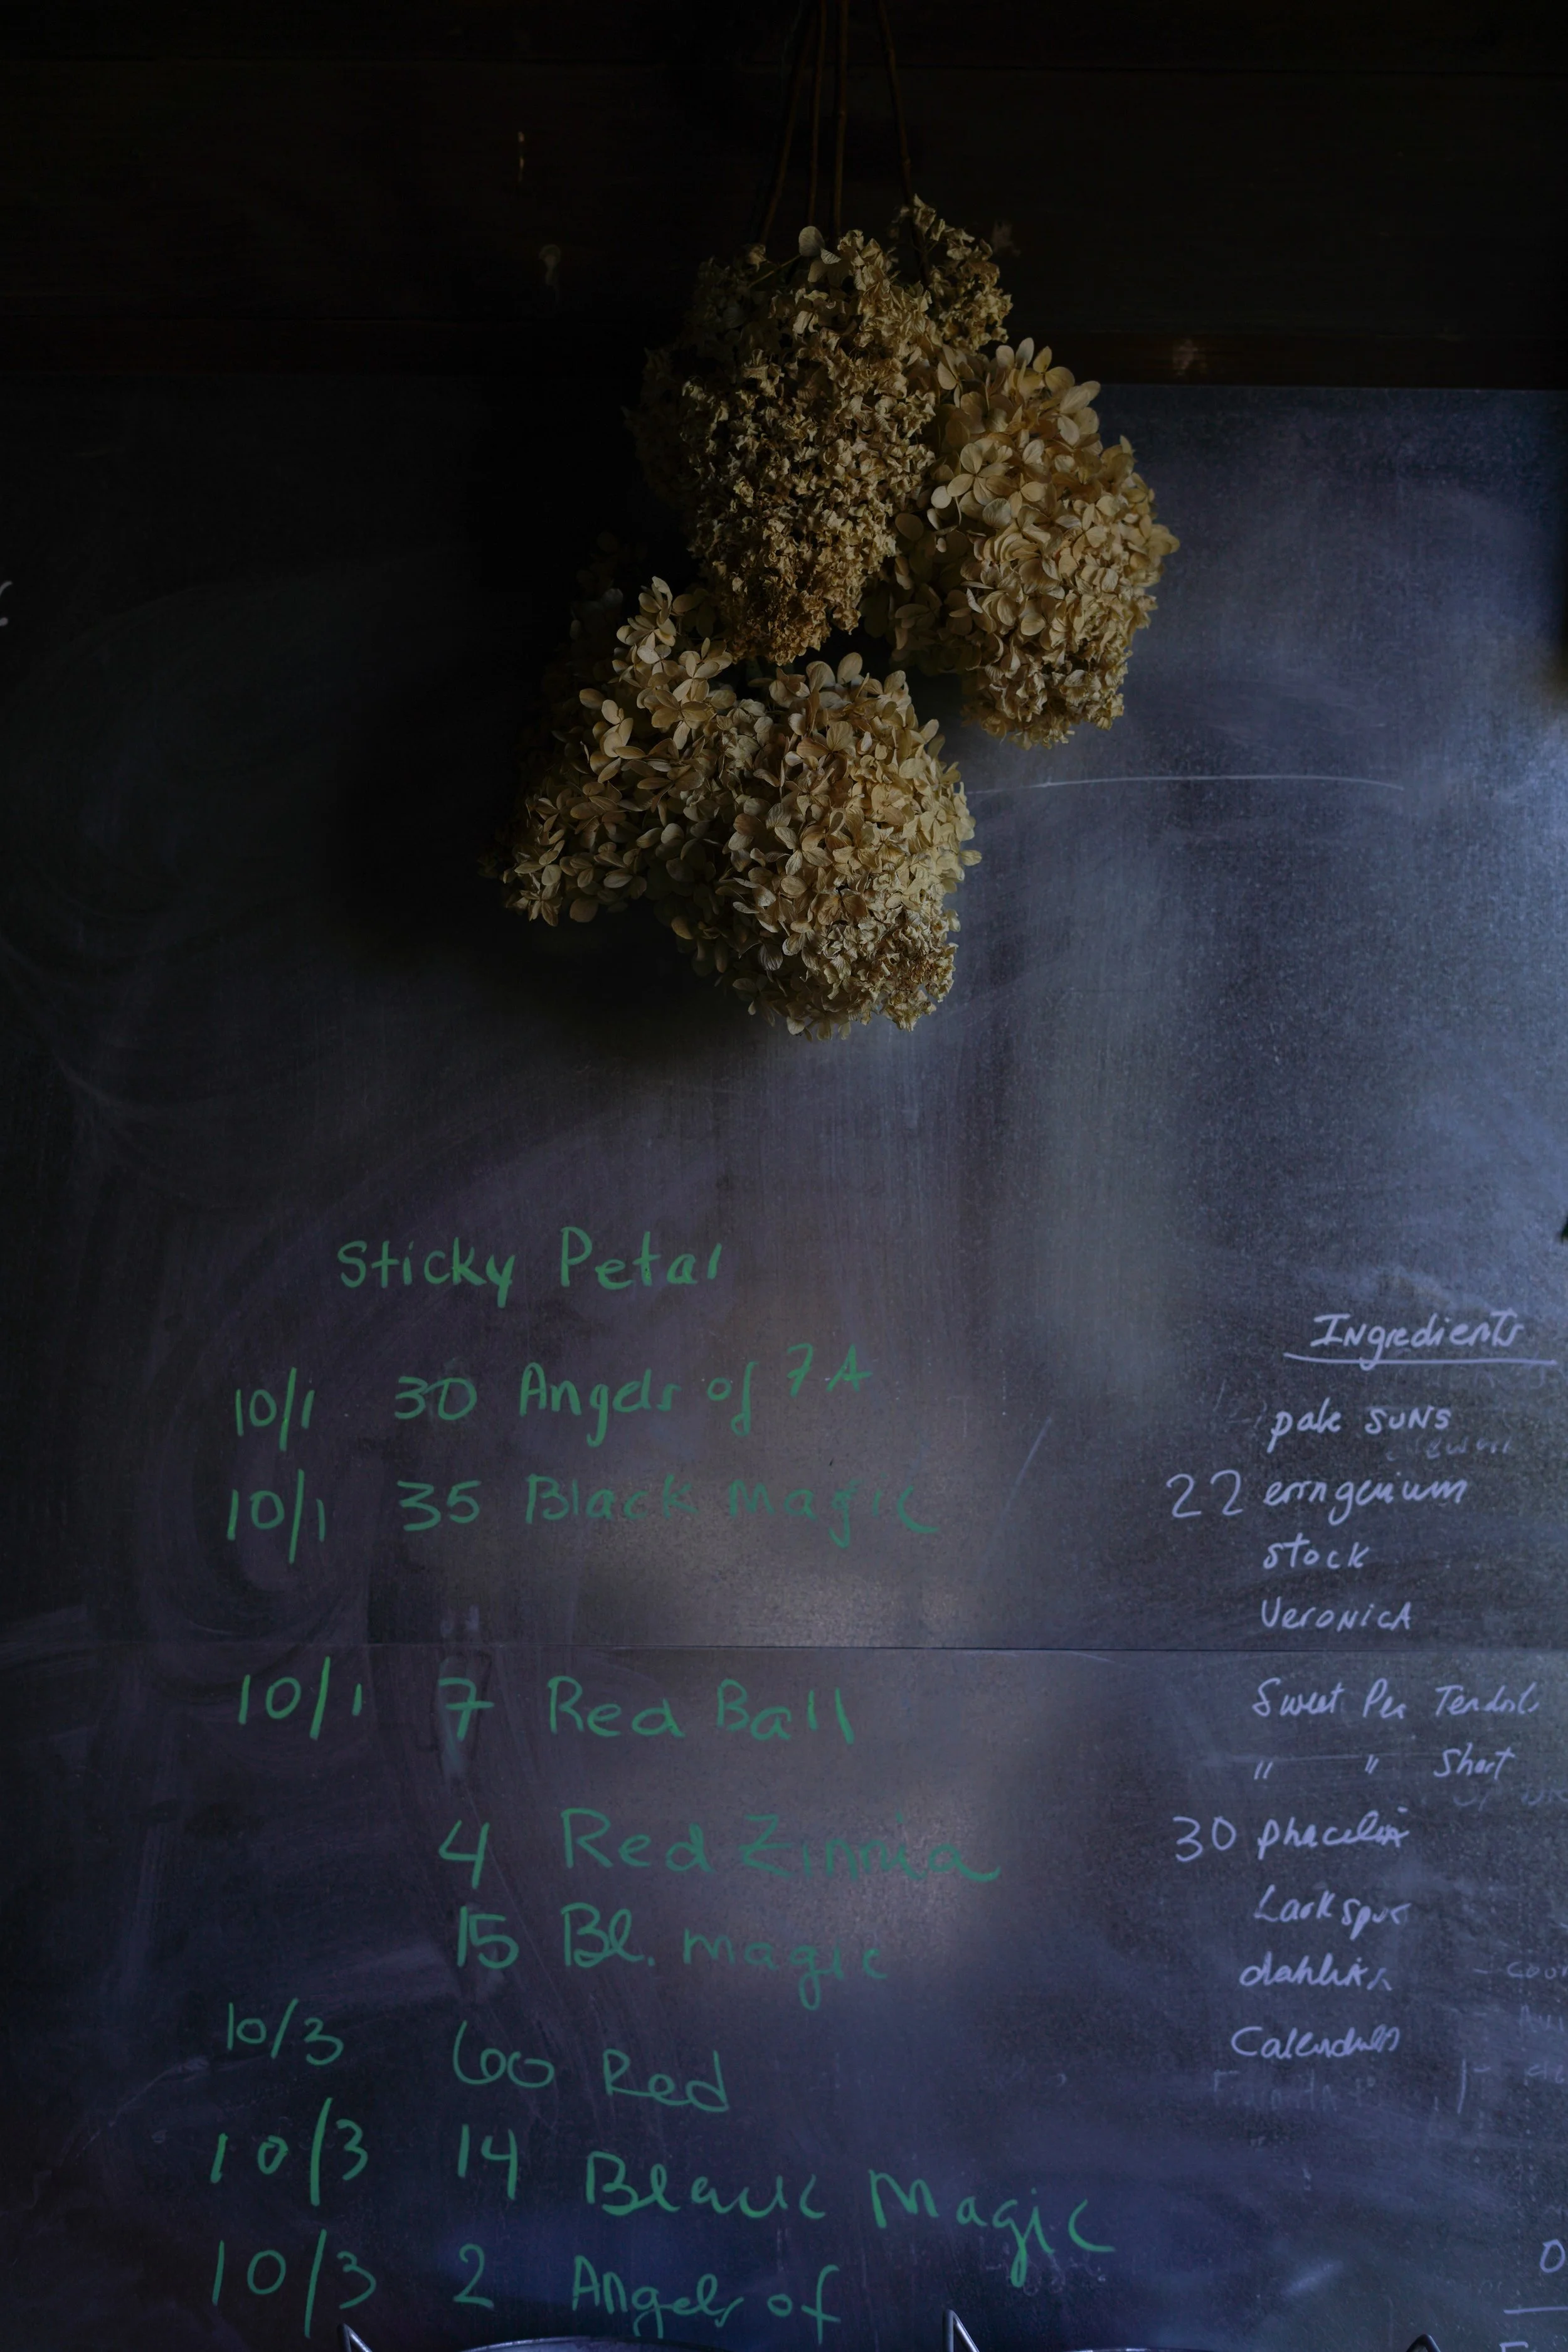 Sticky Petal
10/1 30 Angels of 7A
10/1 35 Black Magic
10/1 7 Red Ball
4 Red Zinnia
15 Bl. magic
10/3 60 Red
10/3 14 Black Magic
10/3 2 Angels of
Ingredients
pale suns
22 erngenium
stock
Veronica
Sweet Pea Tendril
" " Short
30 phacelia
Larkspur
dahlia
Calendula